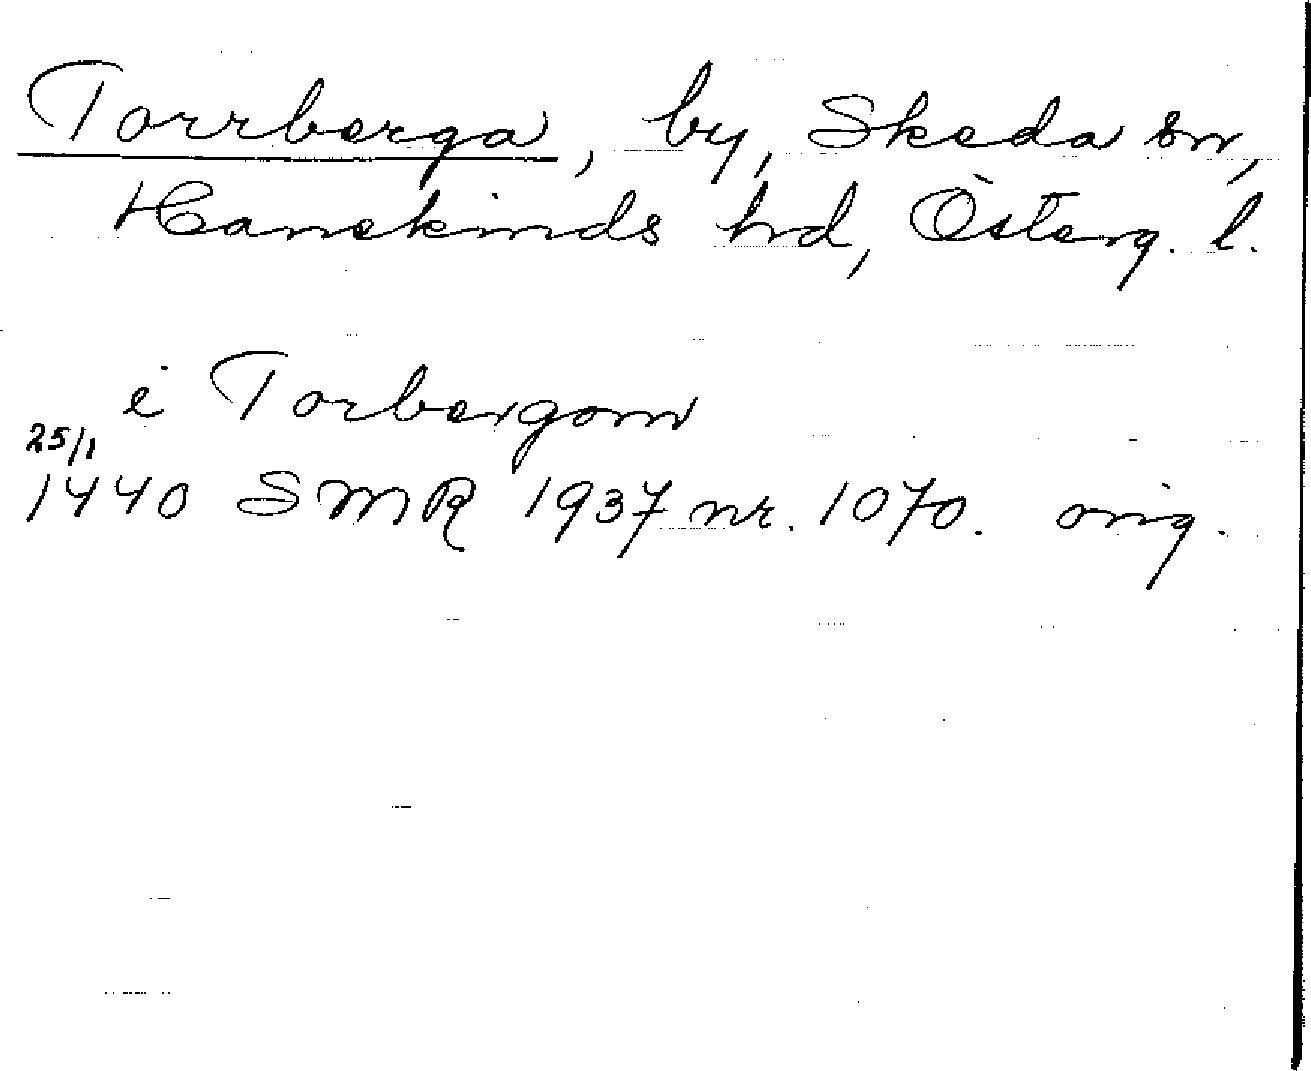 Torrberga, by, Skeda sn,
Hanekinds hrd, Österg. l.
i Torbergom
25/1
1440 SMR 1937 nr. 1070. orig.